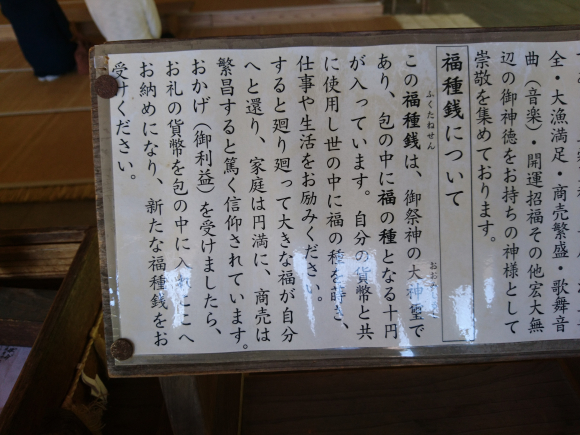 全・大漁満足・商売繁盛・歌舞音
曲（音楽）・開運招福その他宏大無
辺の御神徳をお持ちの神様として
崇敬を集めております。
福種銭について
この福種銭は、御祭神の大神璽で
ふくたねせん
あり、包の中に福の種となる十円
が入っています。自分の貨幣と共
に使用し世の中に福の種を蒔き、
仕事や生活をお励みください。
すると廻り廻って大きな福が自分
へと還り、家庭は円満に、商売は
繁昌すると篤く信仰されています。
おかげ（御利益）を受けましたら、
お礼の貨幣を包の中に入れここへ
お納めになり、新たな福種銭をお
受けください。